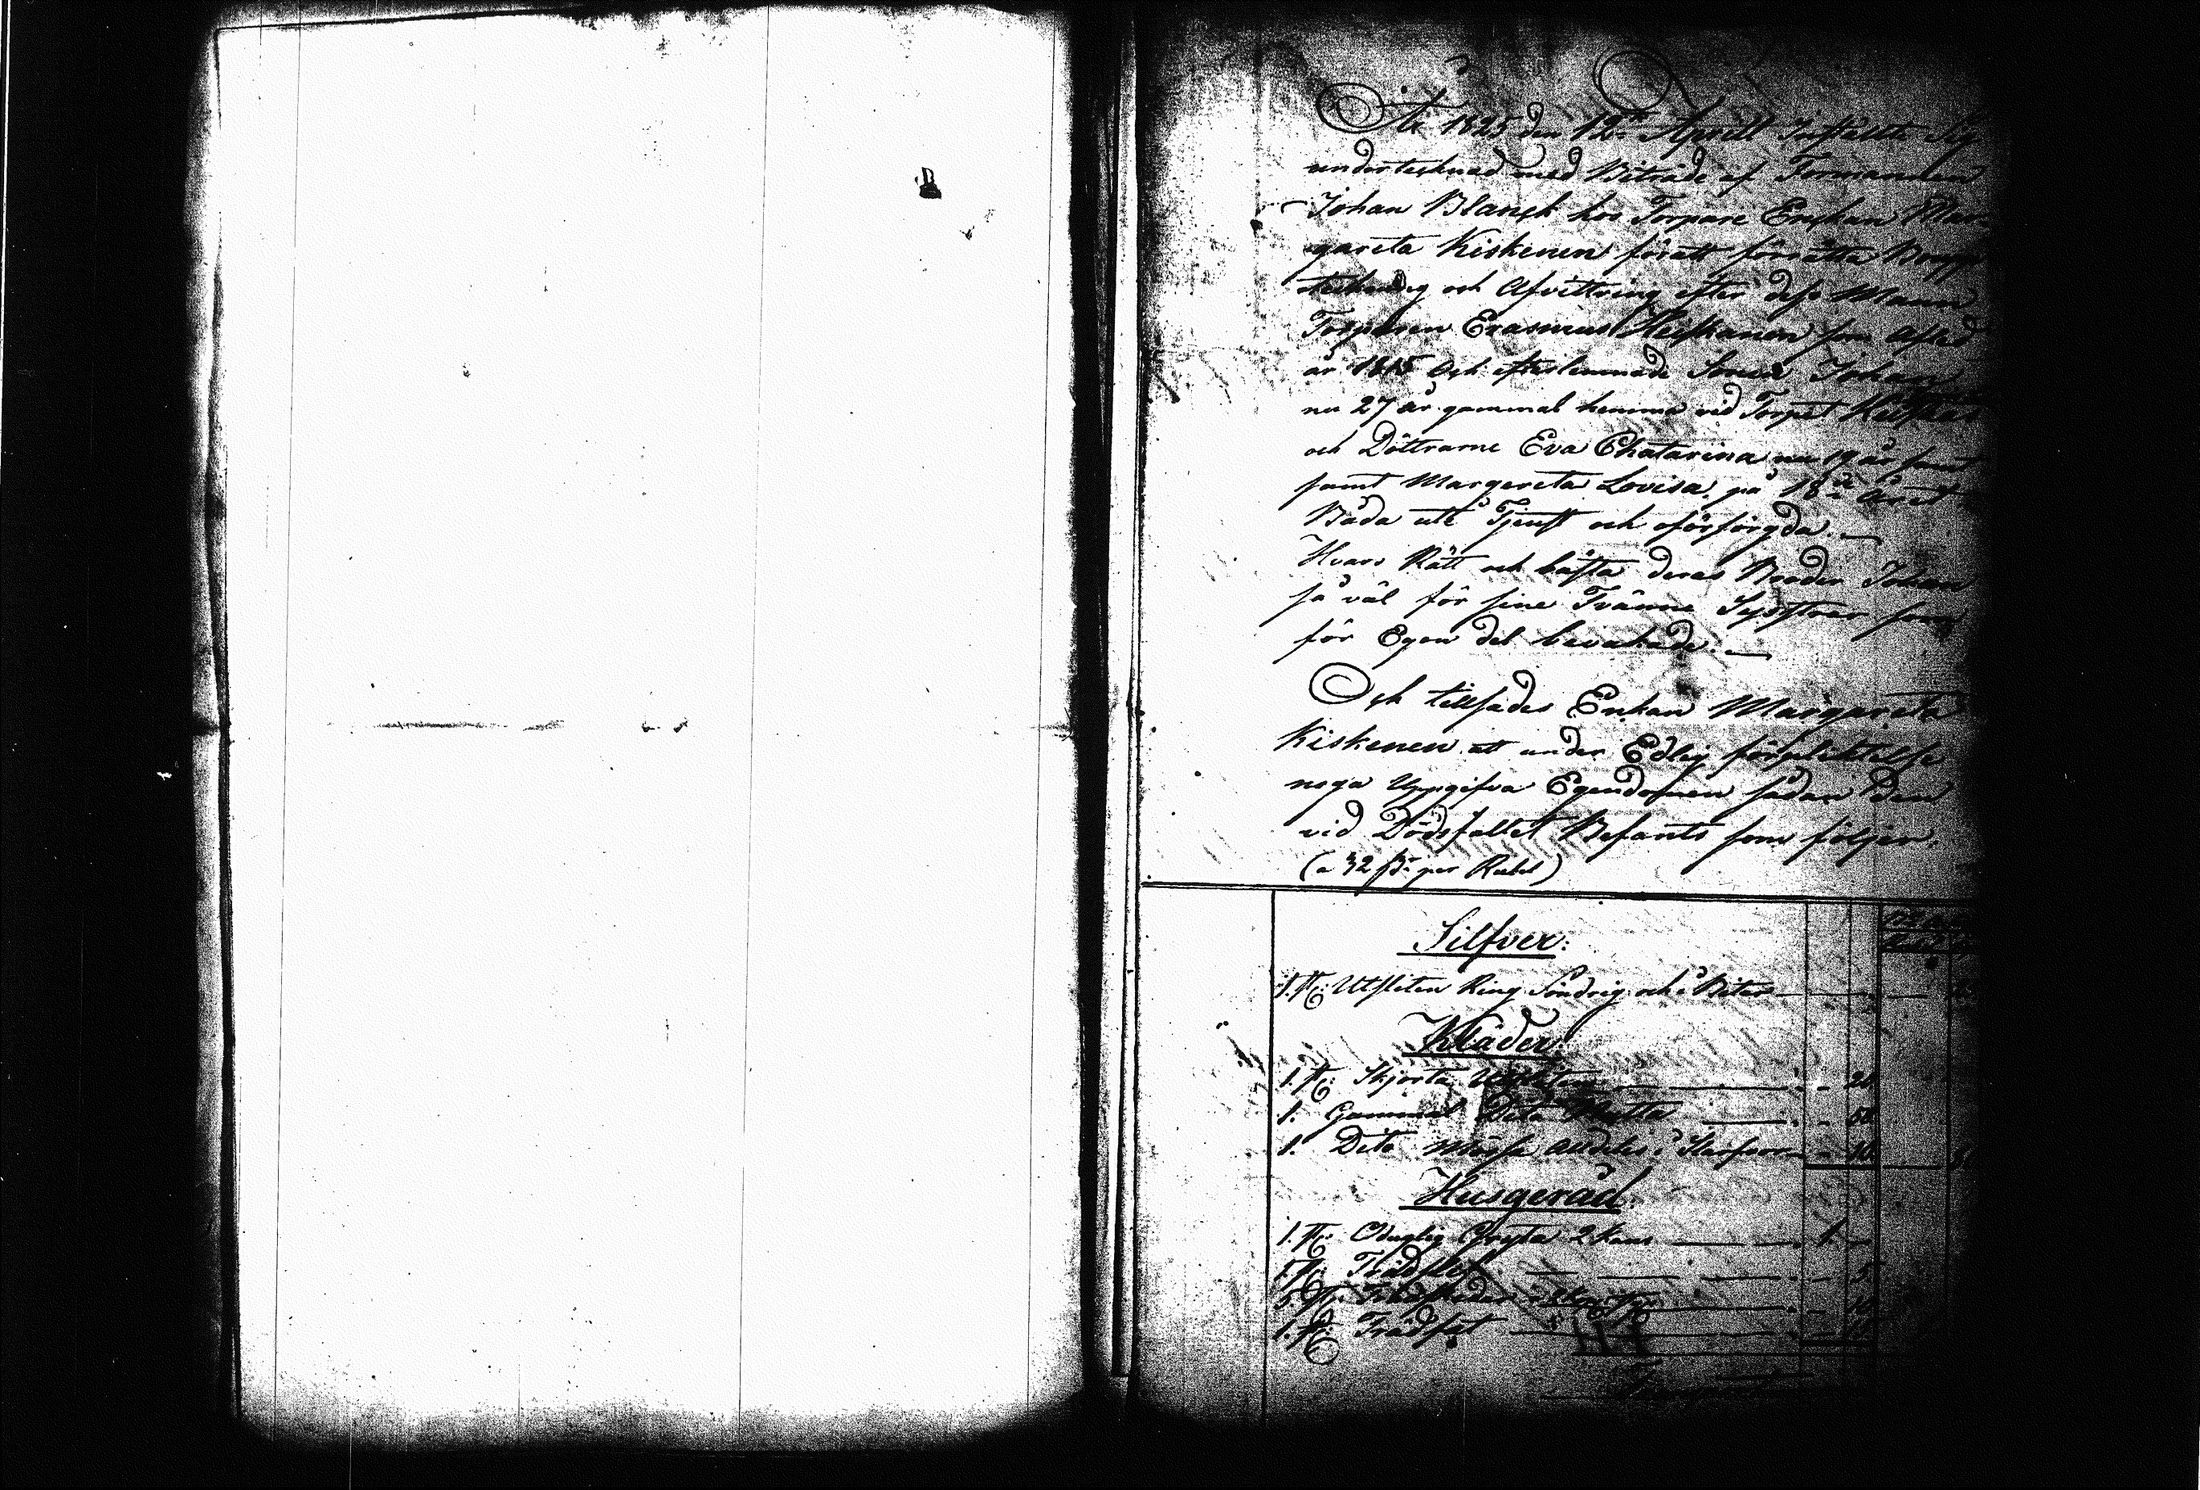 År 1825 den 12te Aprill Instälte Sig
undertecknad med Biträde af Formannen
Johan Blangk hos Torpare Enckan Mar-
gareta Kiskenen föratt förrätta Boupp
teckning och Afvittring efter dess Mann
Torparen Erasmus Heiskanen som Afled
år 1815 Och efterlemnade Sonen Johan
nu 27 år gammal hemma vid Torpet
och Döttrarne Eva Chatarina nu 19 år samt
samt Margereta Lovisa på 18de Året
Båda ute i Tjenst och oförsörgda.
Hvars Rätt och bästa deras Broder Johan
så väl för sine Tvänne Systrar som
för Egen del bevakade.
Och tillsades Enkan Margareta
Kiskenen att under Edlig förpliktelse
noga Uppgifva Egendomen sådan den
vid Dödsfallet Befants som följer.
(a 32 per Rubel)
Silfver:
1. st: Utsliten Ring Söndrig och i Bitar
Kläder
1. st: Skjorta Utsliten 20
1. Gammal Dito 50
1. Dito Mössa Aldeles i Skarfvor 10
Husgeråd
1. st: Oduglig Gryta 2 Kans 1.
1. st: Trädslef 5
5. st: Trädskedar 10
1. st: Trädfat